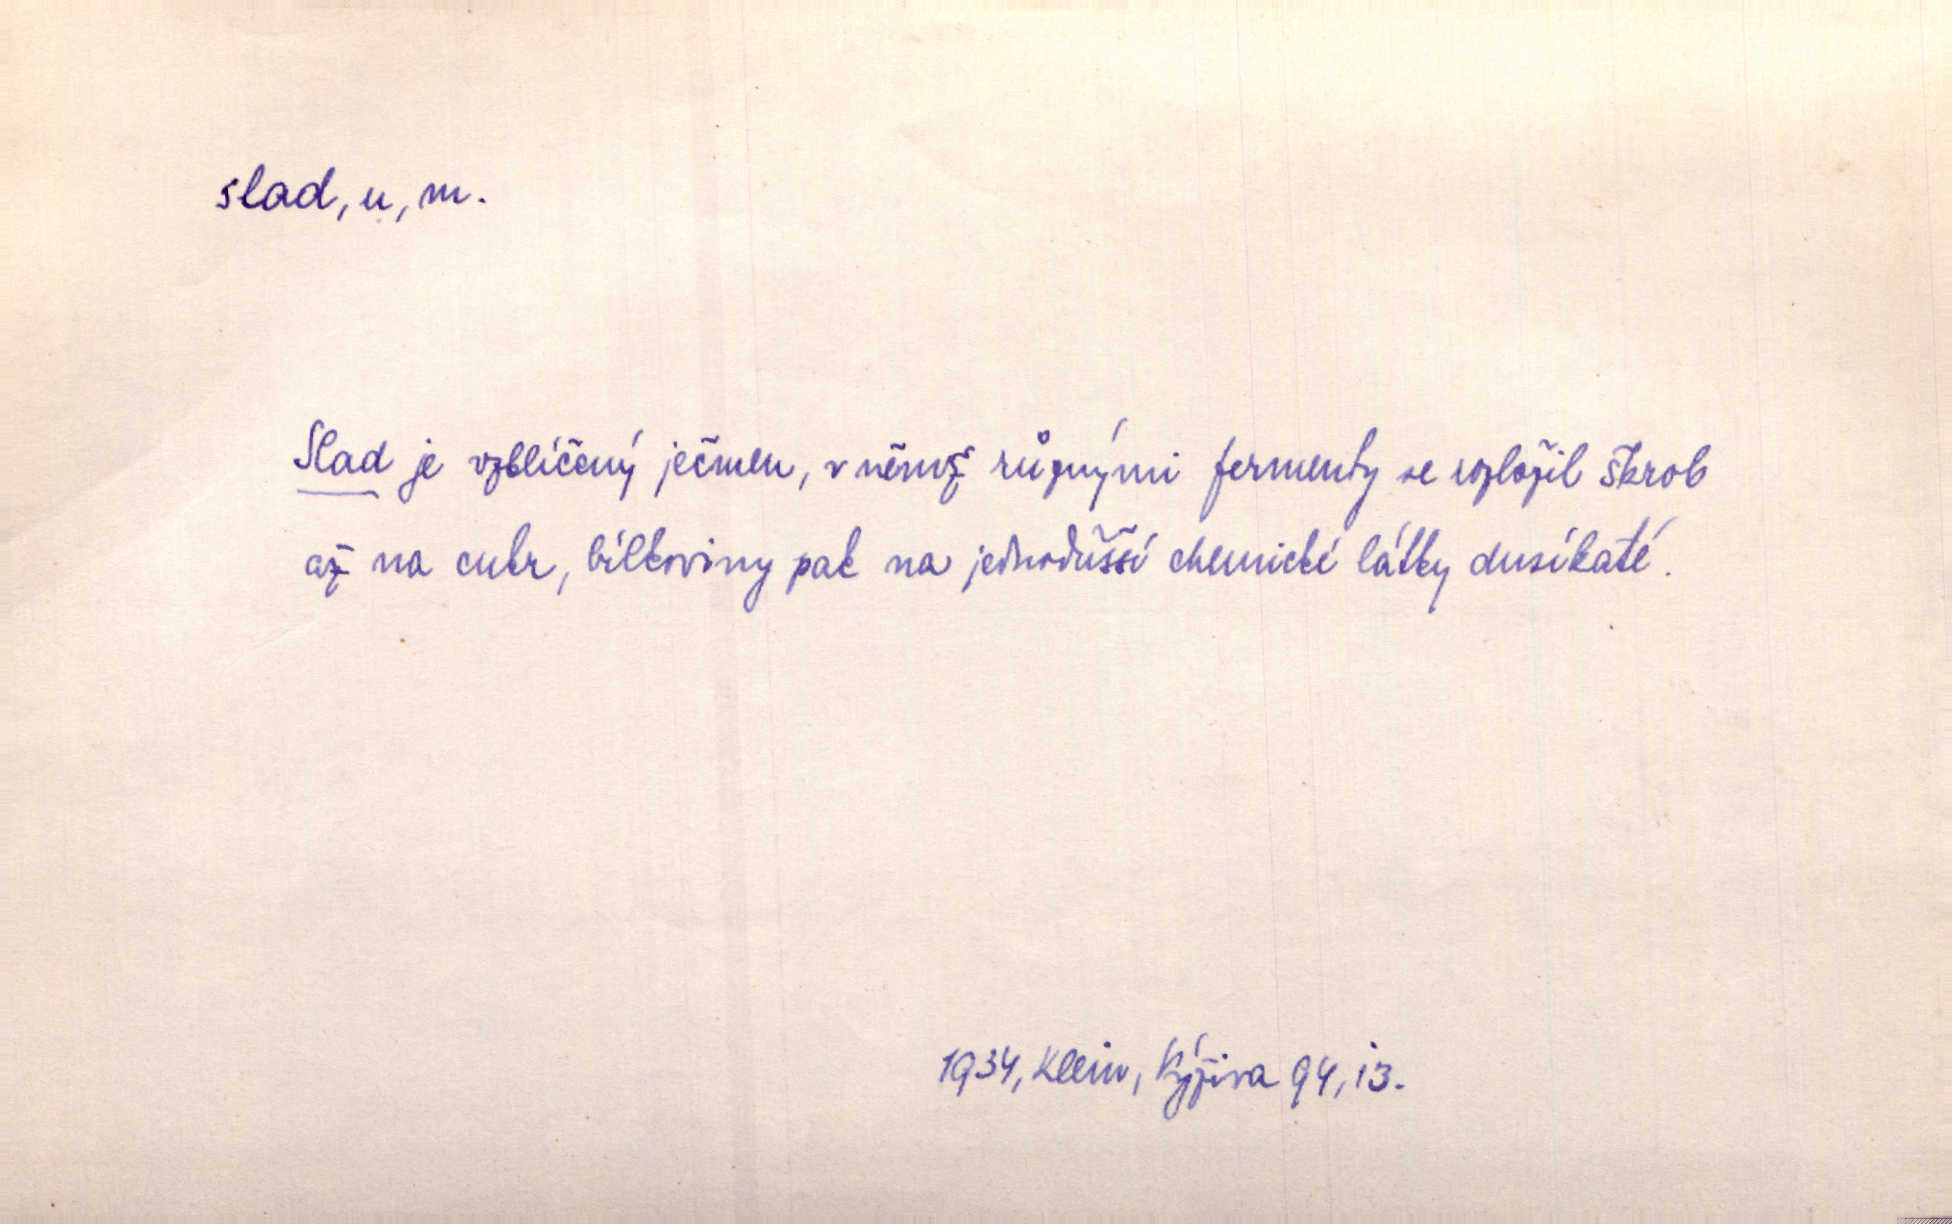 slad, u, m.
Slad je vzklíčený ječmen, v němž různými fermenty se rozložil škrob
až na cukr, bílkoviny pak na jednodušší chemické látky dusíkaté.
1934, Klein, Výživa 94, i3.